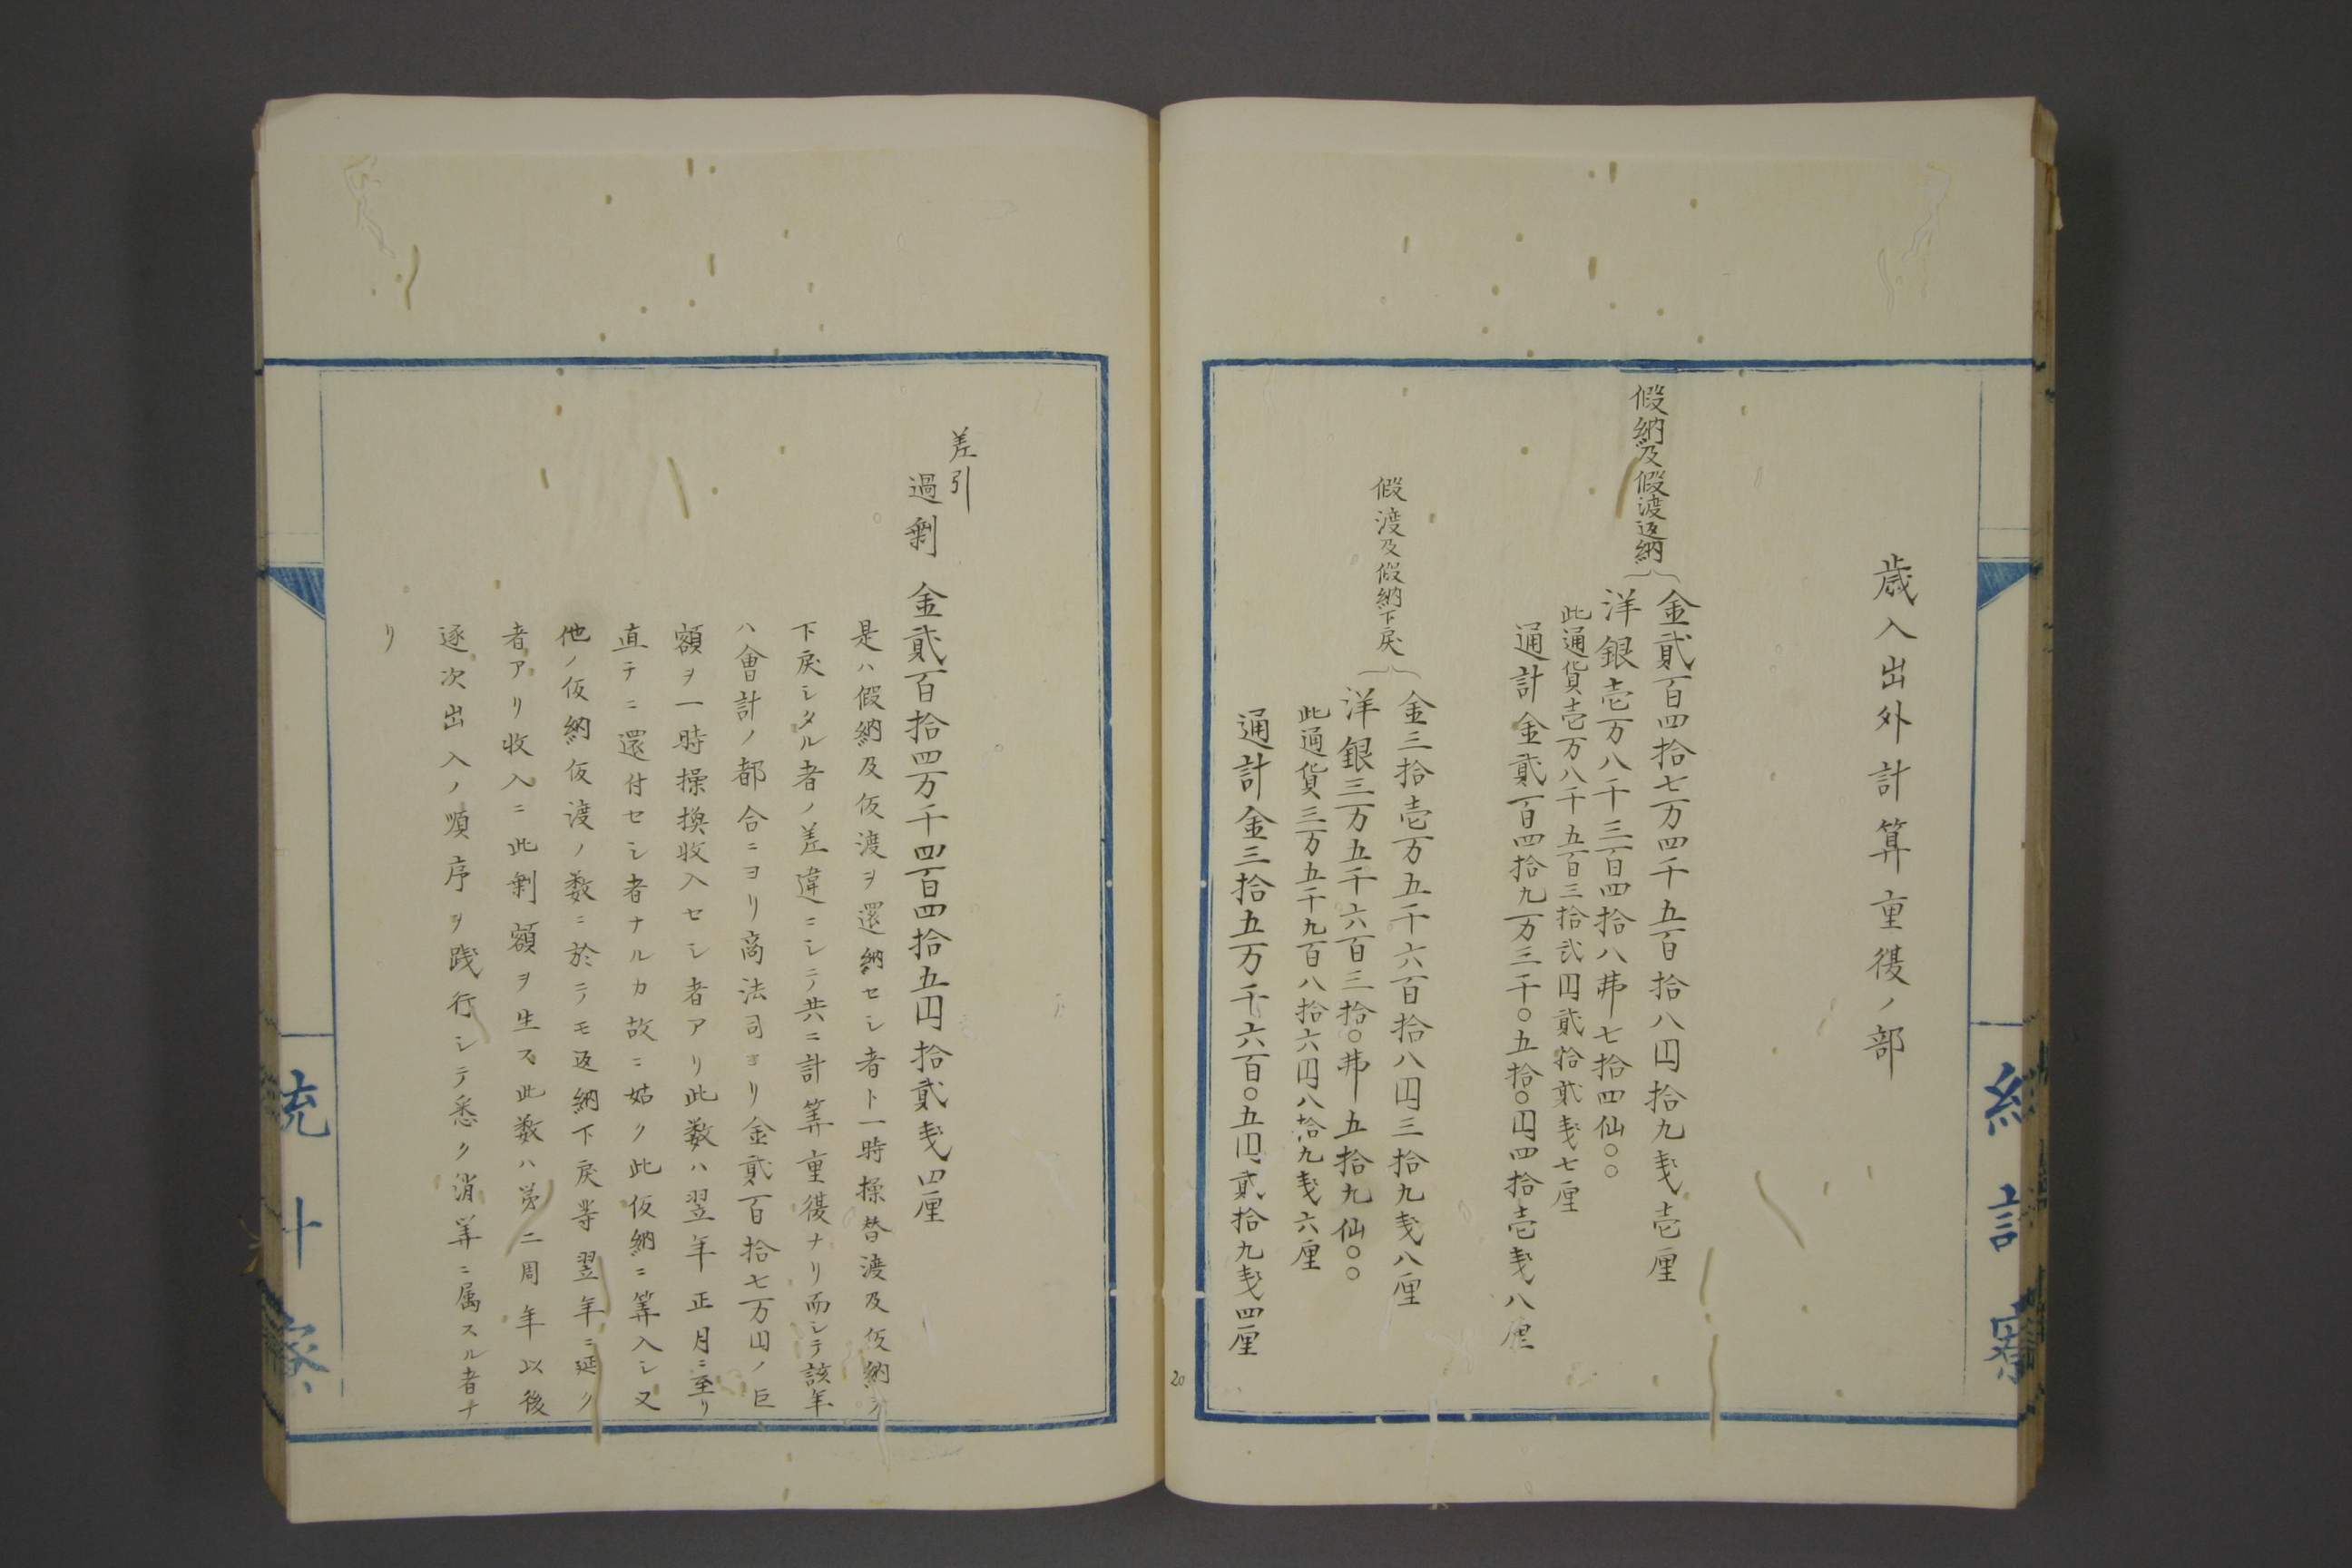 歳入出外計算重復ノ部
假納及假渡返納
金貳百四拾七万四千五百拾八円拾九戔壱厘
洋銀壱万八千三百四拾八弗七拾四仙〇〇
此通貨壱万八千五百三拾弐円貳拾貳戔七厘
通計金貳百四拾九万三千〇五拾〇円四拾壱戔八厘
假渡及假納下戻
金三拾壱万五千六百拾八円三拾九戔八厘
洋銀三万五千六百三拾〇弗五拾九仙〇〇
此通貨三万五千九百八拾六円八拾九戔六厘
通計金三拾五万千六百〇五円貳拾九戔四厘
20
差引
過剰 金貳百拾四万千四百四拾五円拾貳戔四厘
是ハ假納及仮渡ヲ還納セシ者ト一時操替渡及仮納ヲ
下戻シタル者ノ差違ニシテ共ニ計算重復ナリ而シテ該年
ハ會計ノ都合ニヨリ商法司ヨリ金貳百拾七万円ノ巨
額ヲ一時操換收入セシ者アリ此数ハ翌年正月ニ至リ
直チニ還付セシ者ナルカ故ニ姑ク此仮納ニ算入シ又
他ノ仮納仮渡ノ数ニ於テモ返納下戻等翌年ニ延ク
者アリ收入ニ此剰額ヲ生ス此数ハ第二周年以後
逐次出入ノ順序ヲ践行シテ悉ク消算ニ属スル者ナ
リ
統計寮
統計寮